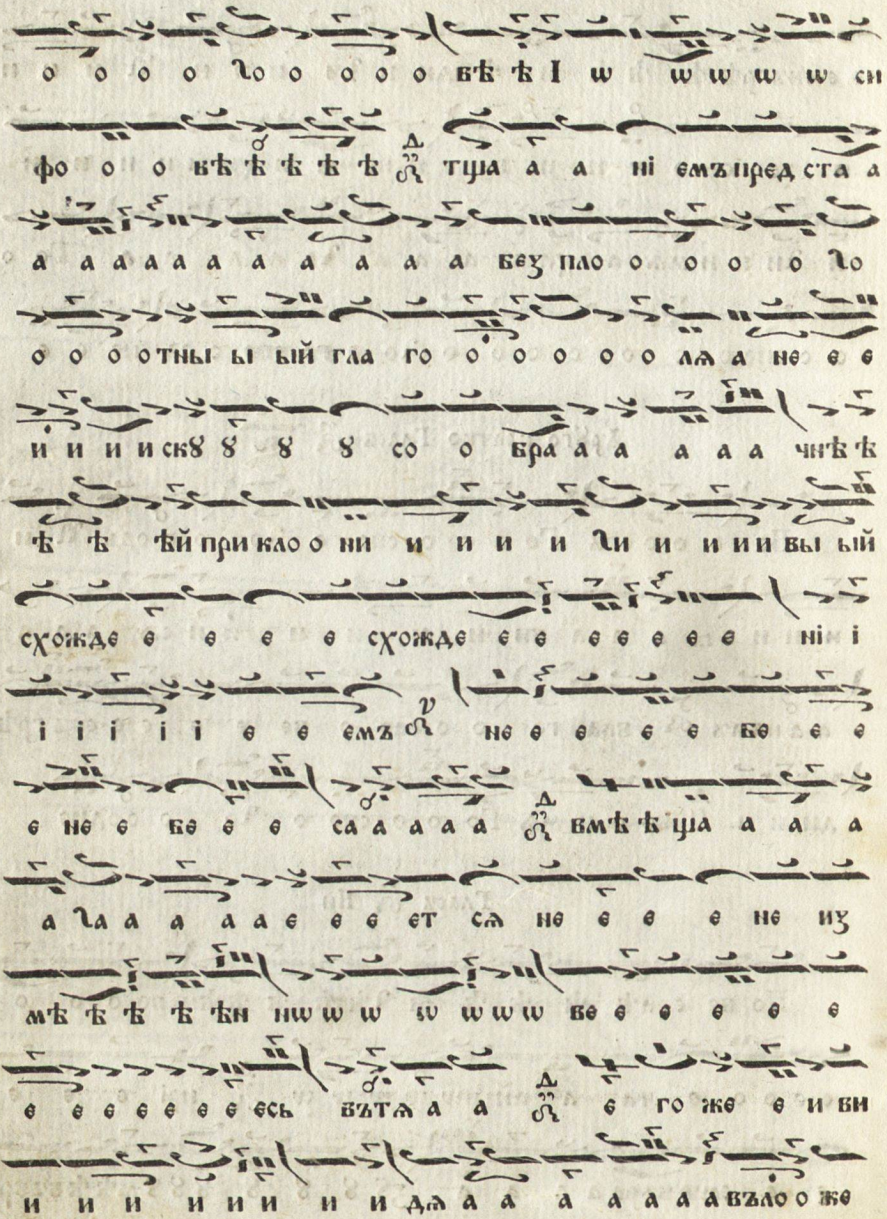 о о о о ло о о о о вѣ ѣ І ѡ ѡ ѡ ѡ ѡ си
фо о о вѣ ѣ ѣ ѣ ѣ тща а а ні емъ пред ста а
а а а а а а а а а а а без пло о о о о ло
о о о о тны ы ый гла го о о о о о ля а не е е
и и и и скꙋ ꙋ ꙋ ꙋ со о бра а а а а а чнѣ ѣ
ѣ ѣ ѣй при кло о ни и и и и ли и и и и вы ый
схожде е е е е схожде е е е е е е е ні і
і і і і і е е емъ не е е е е е бе е е
е не е бе е е са а а а а вмѣ ѣ ща а а а
а ла а а а а е е е ет ся не е е е не из
мѣ ѣ ѣ ѣ ѣн нѡ ѡ ѡ ѡ ѡ ѡ ѡ ве е е е е е
е е е е е е е есь вътя а а е го же е и ви
и и и и и и и и дя а а а а а а въло о же